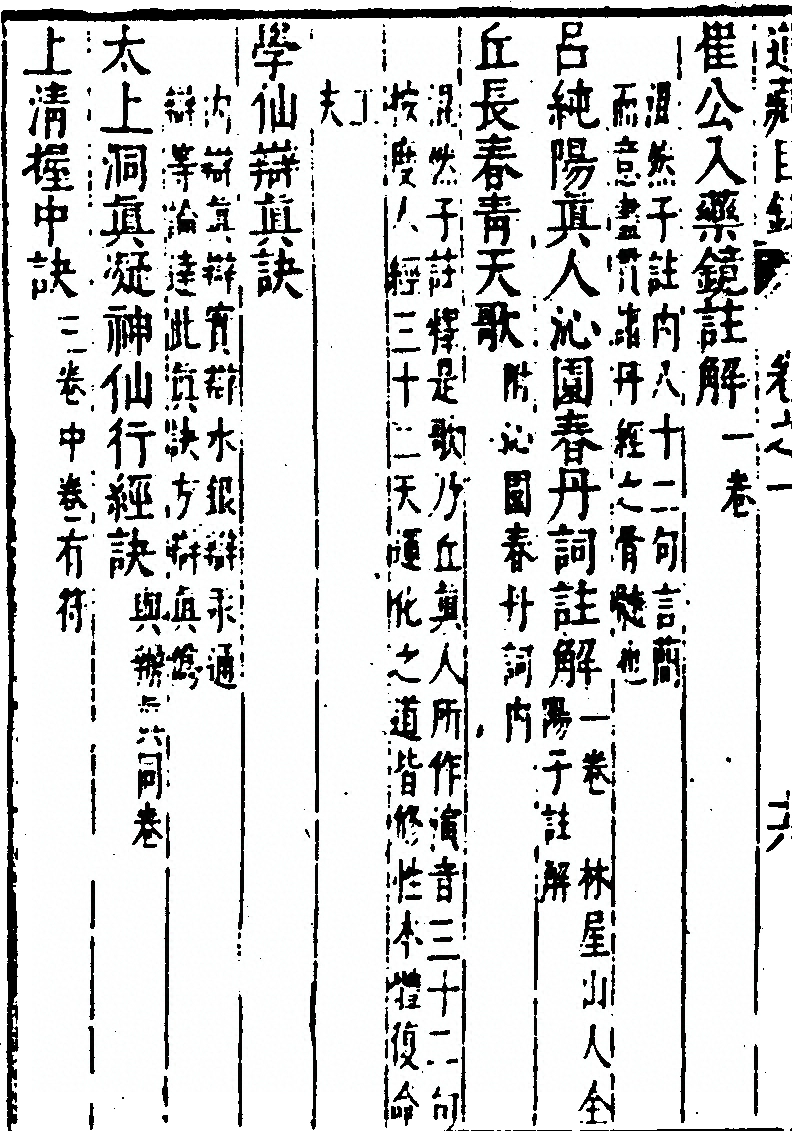 道藏目錄 卷之一
崔公入藥鏡註解 一卷
混然子註內八十二句言簡
而意盡諸丹經之骨髓也
呂純陽眞人沁園春丹詞註解 一卷 林屋山人全
陽子註解
丘長春青天歌 附沁園春丹詞內
混然子註釋是歌乃丘眞人所作演音三十二句
按度人經三十二天運化之道皆修性本體復命
工
夫
學仙辯眞訣
內辯眞辯實辯水銀辯汞通
辯等論達此眞訣方辯眞僞
太上洞眞凝神仙行經訣 與同卷
上清握中訣 三卷中卷有符